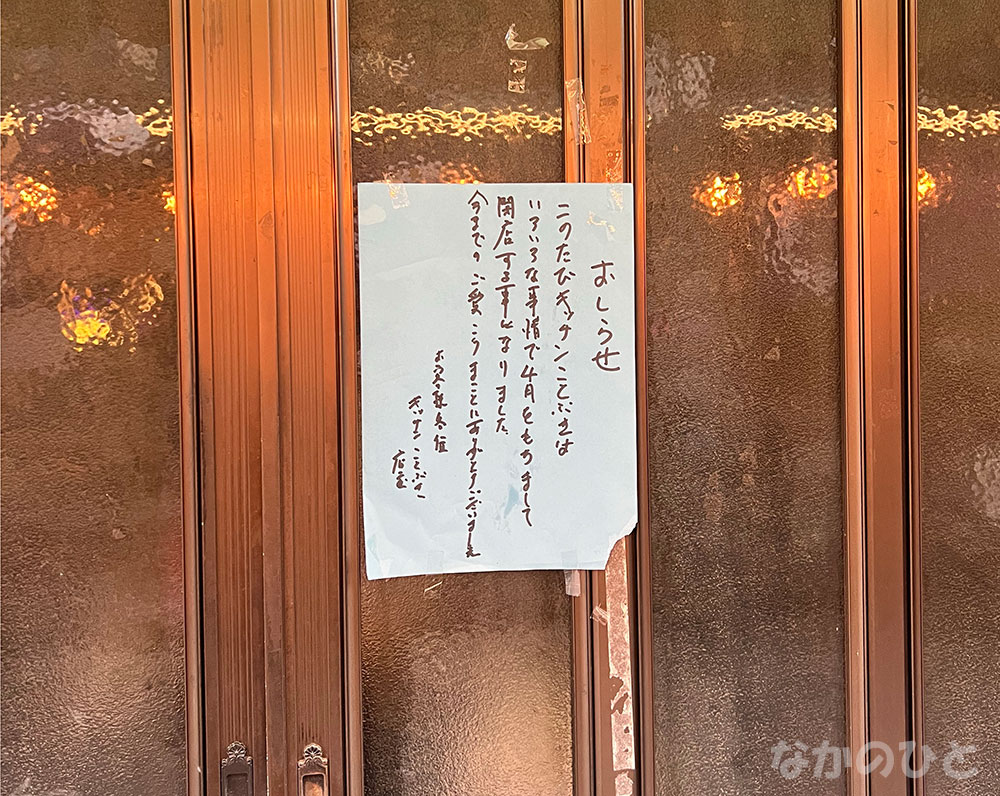 おしらせ
このたびキッチンことぶきは
いろいろな事情で4月をもちまして
閉店する事になりました。
今までのご愛こうまことにありがとうございました
お客様各位
キッチンことぶき
店主
なかのひと